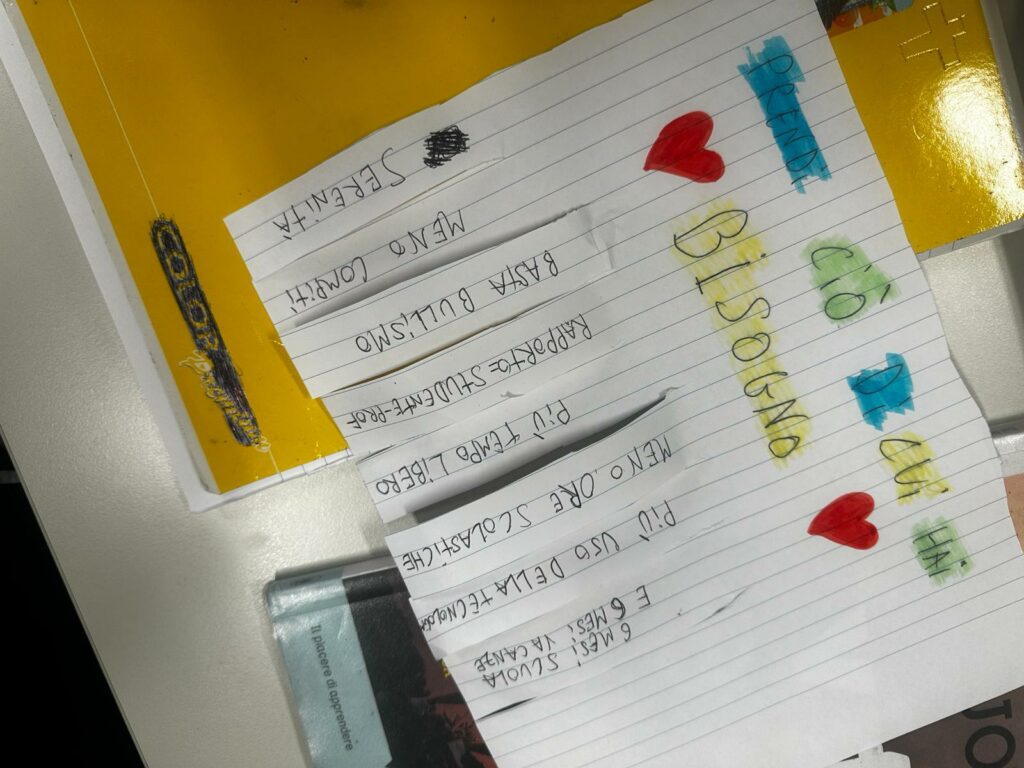 PRENDI CIÒ DI CUI HAI
BISOGNO
SERENITÀ
MENO COMPITI
BASTA BULLISMO
RAPPORTO= STUDENTE-PROF
PIÙ TEMPO LIBERO
MENO ORE SCOLASTICHE
PIÙ USO DELLA
6 MESI SCUOLA
E 6 MESI VACANZE
Il piacere di apprendere